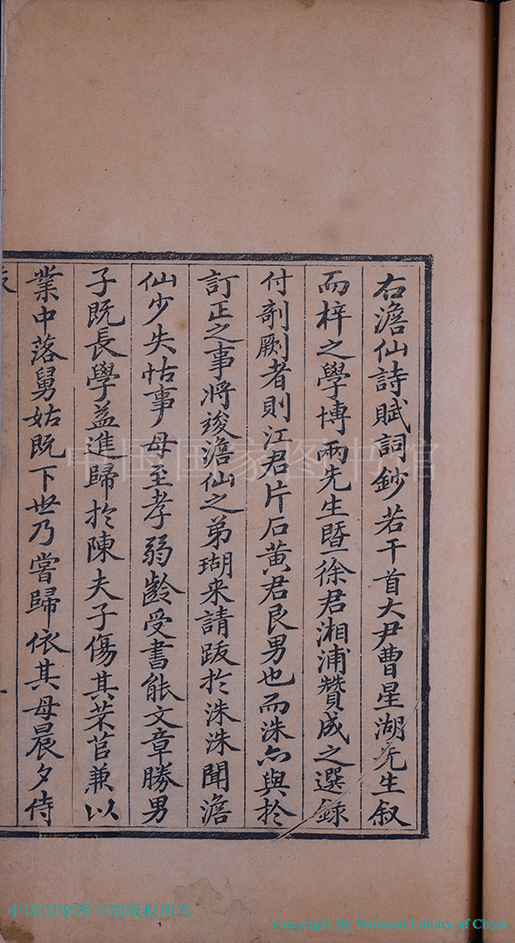 右澹仙詩賦詞鈔若干首大尹曹星湖先生叙
而梓之學博兩先生暨徐君湘浦贊成之選録
付剞劂者則江君片石黄君艮男也而洙亦與於
訂正之事將竣澹仙之弟瑚来請跋於洙洙聞澹
仙少失怙事母至孝弱齡受書能文章勝男
子既長學益進歸於陳夫子傷其芣苢兼以
業中落舅姑既下世乃嘗歸依其母晨夕侍
中国国家图书馆
中国国家图书馆版权所有
Copyright By National Library of China